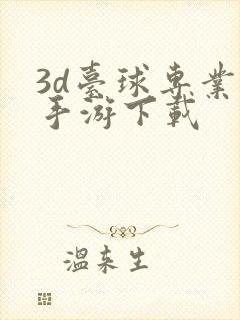 3d臺球專業
手游下載
溫來生